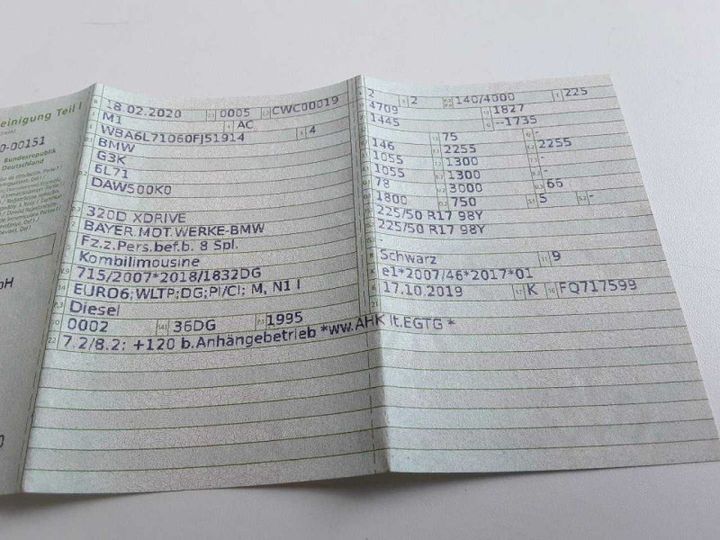 einigung Teil I
0-00151
Bundesrepublik
Deutschland
18.02.2020 0005 CWC00019
M1 AC
WBA6L71060FJ51914 4
BMW
G3K
6L71
DAW500K0
320D XDRIVE
BAYER.MOT.WERKE-BMW
Fz.z.Pers.bef.b. 8 Spl.
Kombilimousine
715/2007*2018/1832DG
EURO6;WLTP;DG;PI/CI; M, N1 I
Diesel
0002 36DG 1995
7.2/8.2: +120 b.Anhängebetrieb *ww.AHK lt.EGTG *
2 2 140/4000 225
4709 1827
1445 --1735
75 -
146 2255 2255
1055 1300 -
1055 1300 -
78 3000 66
1800 750 5 -
225/50 R17 98Y
225/50 R17 98Y
-
Schwarz 9
e1*2007/46*2017*01
17.10.2019 K FQ717599